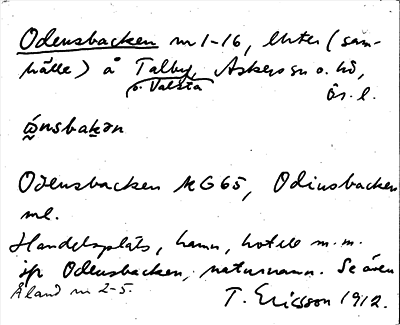 Odensbacken nr 1-16, lht er (sam-
hälle) å Talby, Askers sn o. hd,
o. Valsta
Ör. l.
ώ̨nsbakən
Odensbacken KG65, Odinsbacken
ml.
Handelsplats, hamn, hotell m.m.
jfr Odensbacken, naturnamn. Se även
Åland nr 2-5.
T. Ericsson 1912.